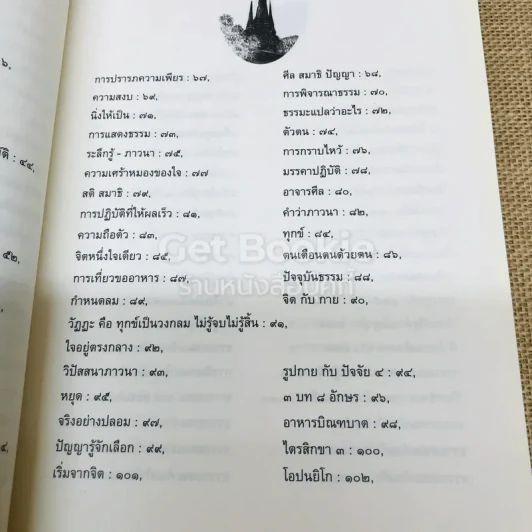 ๖,
ติ : ๔๔,
๕๒,
๔,
การปรารภความเพียร : ๖๗, ศีล สมาธิ ปัญญา : ๖๘,
ความสงบ : ๖๙, การพิจารณาธรรม : ๗๐,
นิ่งให้เป็น : ๗๑, ธรรมะแปลว่าอะไร : ๗๒,
การแสดงธรรม : ๗๓, ตัวตน : ๗๔,
ระลึกรู้ - ภาวนา : ๗๕, การกราบไหว้ : ๗๖,
ความเศร้าหมองของใจ : ๗๗ มรรคาปฏิบัติ : ๗๘,
สติ สมาธิ : ๗๙, อาจารศีล : ๘๐,
การปฏิบัติที่ให้ผลเร็ว : ๘๑, คำว่าภาวนา : ๘๒,
ความถือตัว : ๘๓, ทุกข์ : ๘๔,
จิตหนึ่งใจเดียว : ๘๕, ตนเตือนตนด้วยตน : ๘๖,
การเที่ยวขออาหาร : ๘๗, ปัจจุบันธรรม : ๘๘,
กำหนดลม : ๘๙, จิต กับ กาย : ๙๐,
วัฏฏะ คือ ทุกข์เป็นวงกลม ไม่รู้จบไม่รู้สิ้น : ๙๑,
ใจอยู่ตรงกลาง : ๙๒,
วิปัสสนาภาวนา : ๙๓, รูปกาย กับ ปัจจัย ๔ : ๙๔,
หยุด : ๙๕, ๓ บท ๘ อักษร : ๙๖,
จริงอย่างปลอม : ๙๗, อาหารบิณฑบาต : ๙๘,
ปัญญารู้จักเลือก : ๙๙, ไตรสิกขา ๓ : ๑๐๐,
เริ่มจากจิต : ๑๐๑, โอปนยิโก : ๑๐๒,
Get Bookie
ร้านหนังสือมือที่